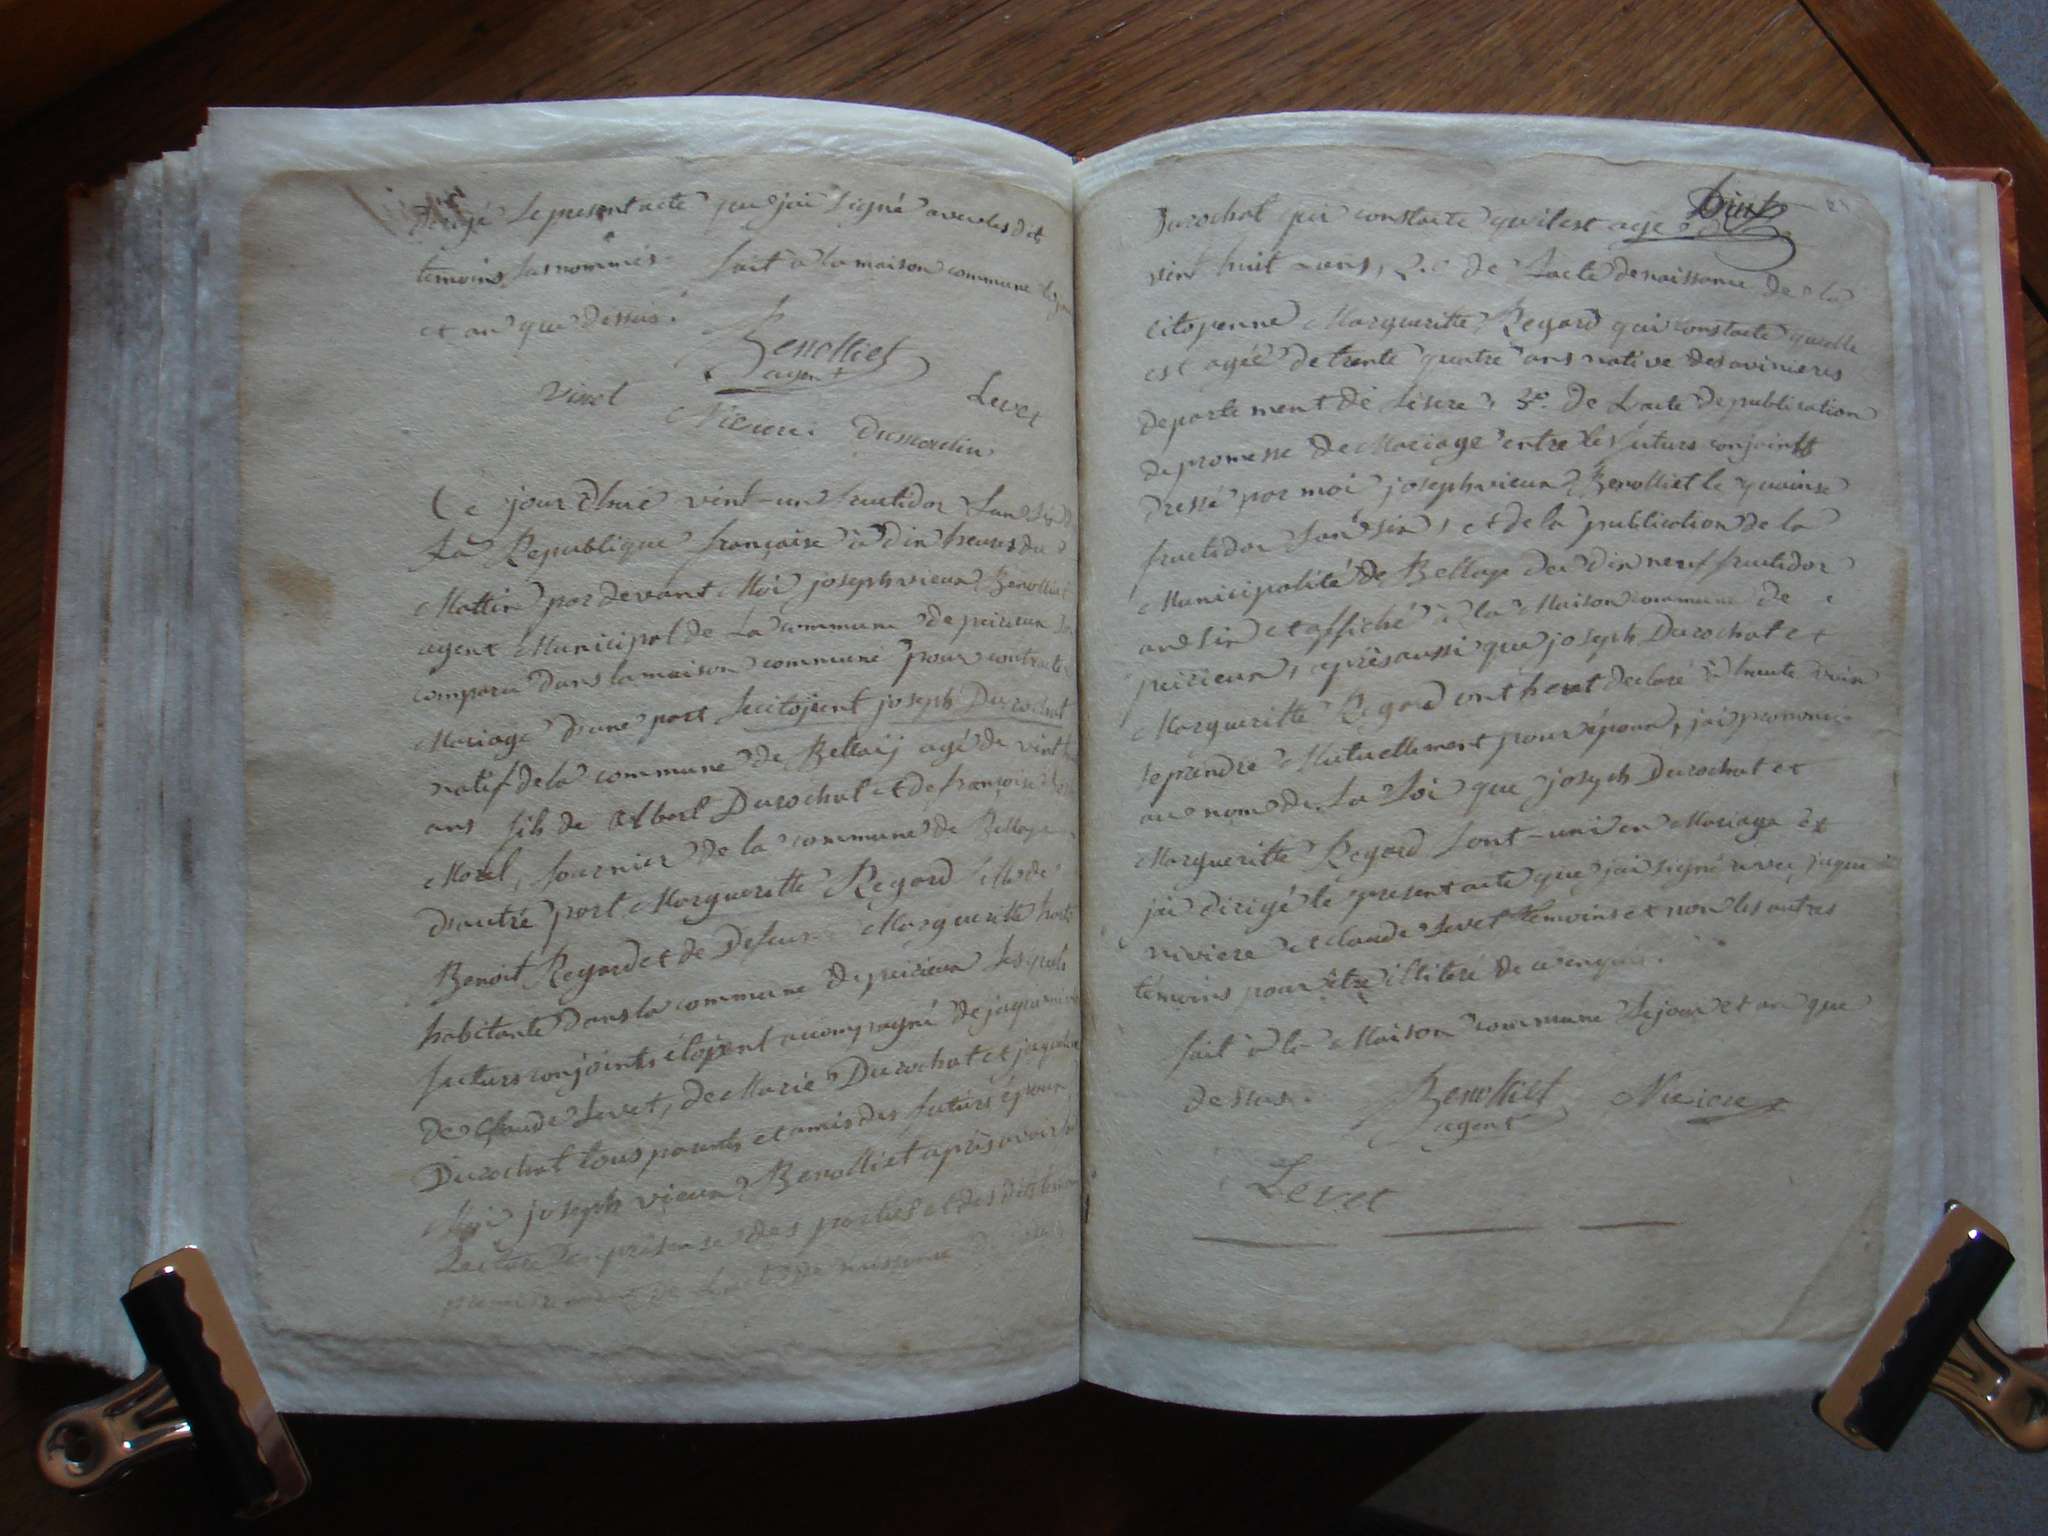 dirigé le present acte que jai signé avec les dit
temoins susnommés. fait a la maison commune le jour
et an que dessus.
Benolliet
agent
vinet Levet
Niviere Dumoulin
Ce jourdhué vint-un fructidor lan six de
La Republique française à dix heures du
Mattin pardevant Moi joseph vieux Benolliet
agent Municipal de La commune de peizieux
comparu dans la maison commune pour contracter
Mariage d'une part le citojent joseph Durochat
natif de la commune de Bellaij agé de vint huit
ans fils de Albert Durochat et de françoise
Morel, fournier de la commune de Bellaye
d'autre part Margueritte Regard fille de
Benoit Regard et de Defeus Margueritte
habitante dans la commune de peizieux Lesquels
futurs conjoints étojent accompagné de jaque niviere
de Claude Levet, de Marie Durochat et jaque
Durochat tous parents et amis des futurs époux,
Moi joseph vieux Benolliet après avoir fait
Lecture en présense des parties et des dits temoins
premierement de Lacte de naissance de joseph
Durochat qui constate quil est agé de
vint huit ans, 2.e de Lacte de naissance de la
citoyenne Margueritte Regard qui constate quelle
est agée de trente quatre ans native des avinieres
departement de Lisere, 3e. de Lacte de publication
de promesse de Mariage entre les futurs conjoints
dressé par moi joseph vieux Benolliet le quainse
fructidor lan six, et de la publication de la
Municipalité de Bellaye du dix neuf fructidor
an six et affiché à la Maison commune de
peizieux, après aussi que joseph Durochat et
Margueritte Regard ont heut declaré à haute voix
se prendre Mutuellement pour époux, jai prononcé
au nom de La Loi que joseph Durochat et
Margueritte Regard sont-uni en Mariage et
jai dirigé le present acte que jai signé avec jaque
niviere et claude Levet temoins et non les autres
temoins pour être illiteré de ce enquis.
fait à la Maison commune le jour et an que
dessus. Benolliet Niviere
agent
Levet